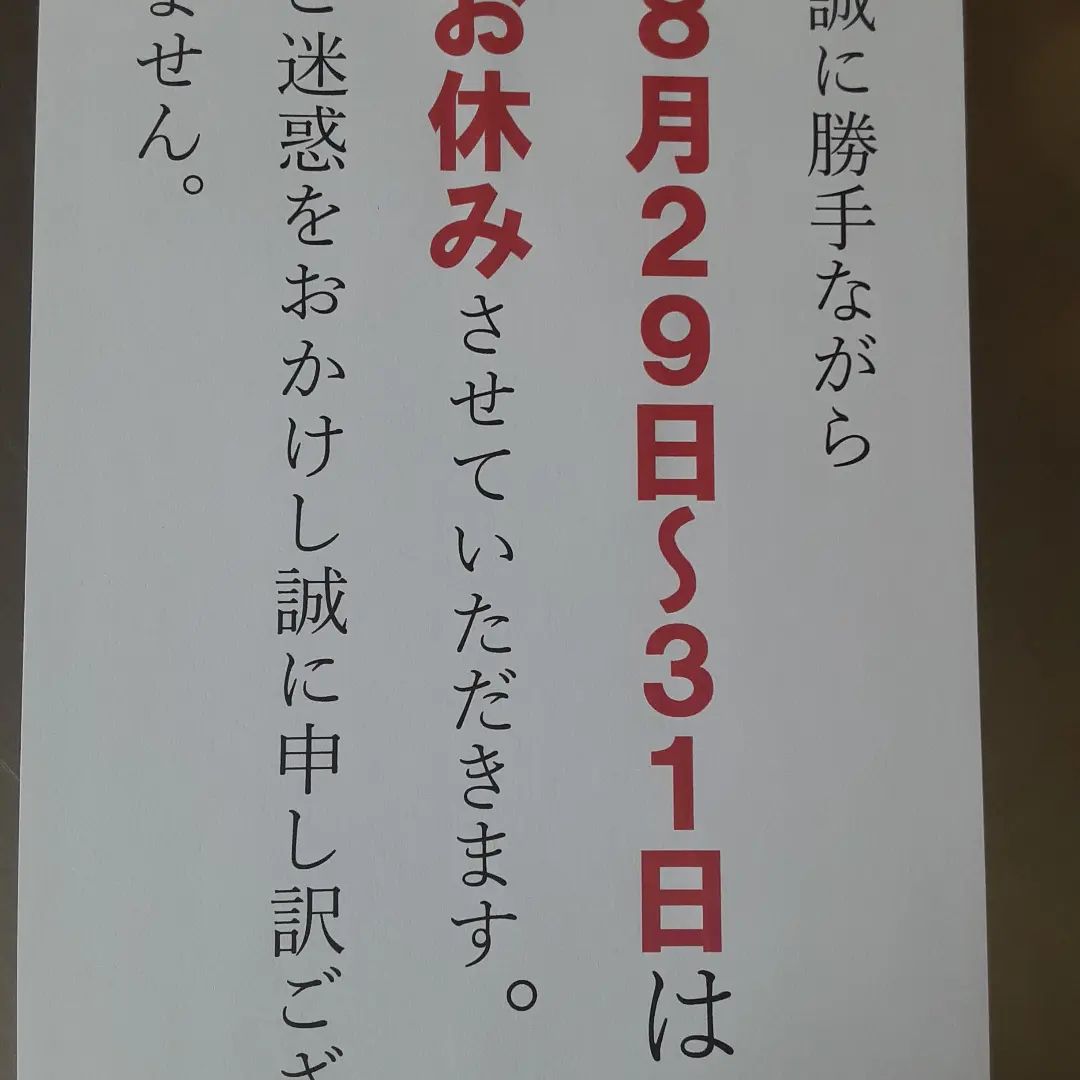 誠に勝手ながら
8月29日～31日は
お休みさせていただきます。
ご迷惑をおかけし誠に申し訳ござ
ません。